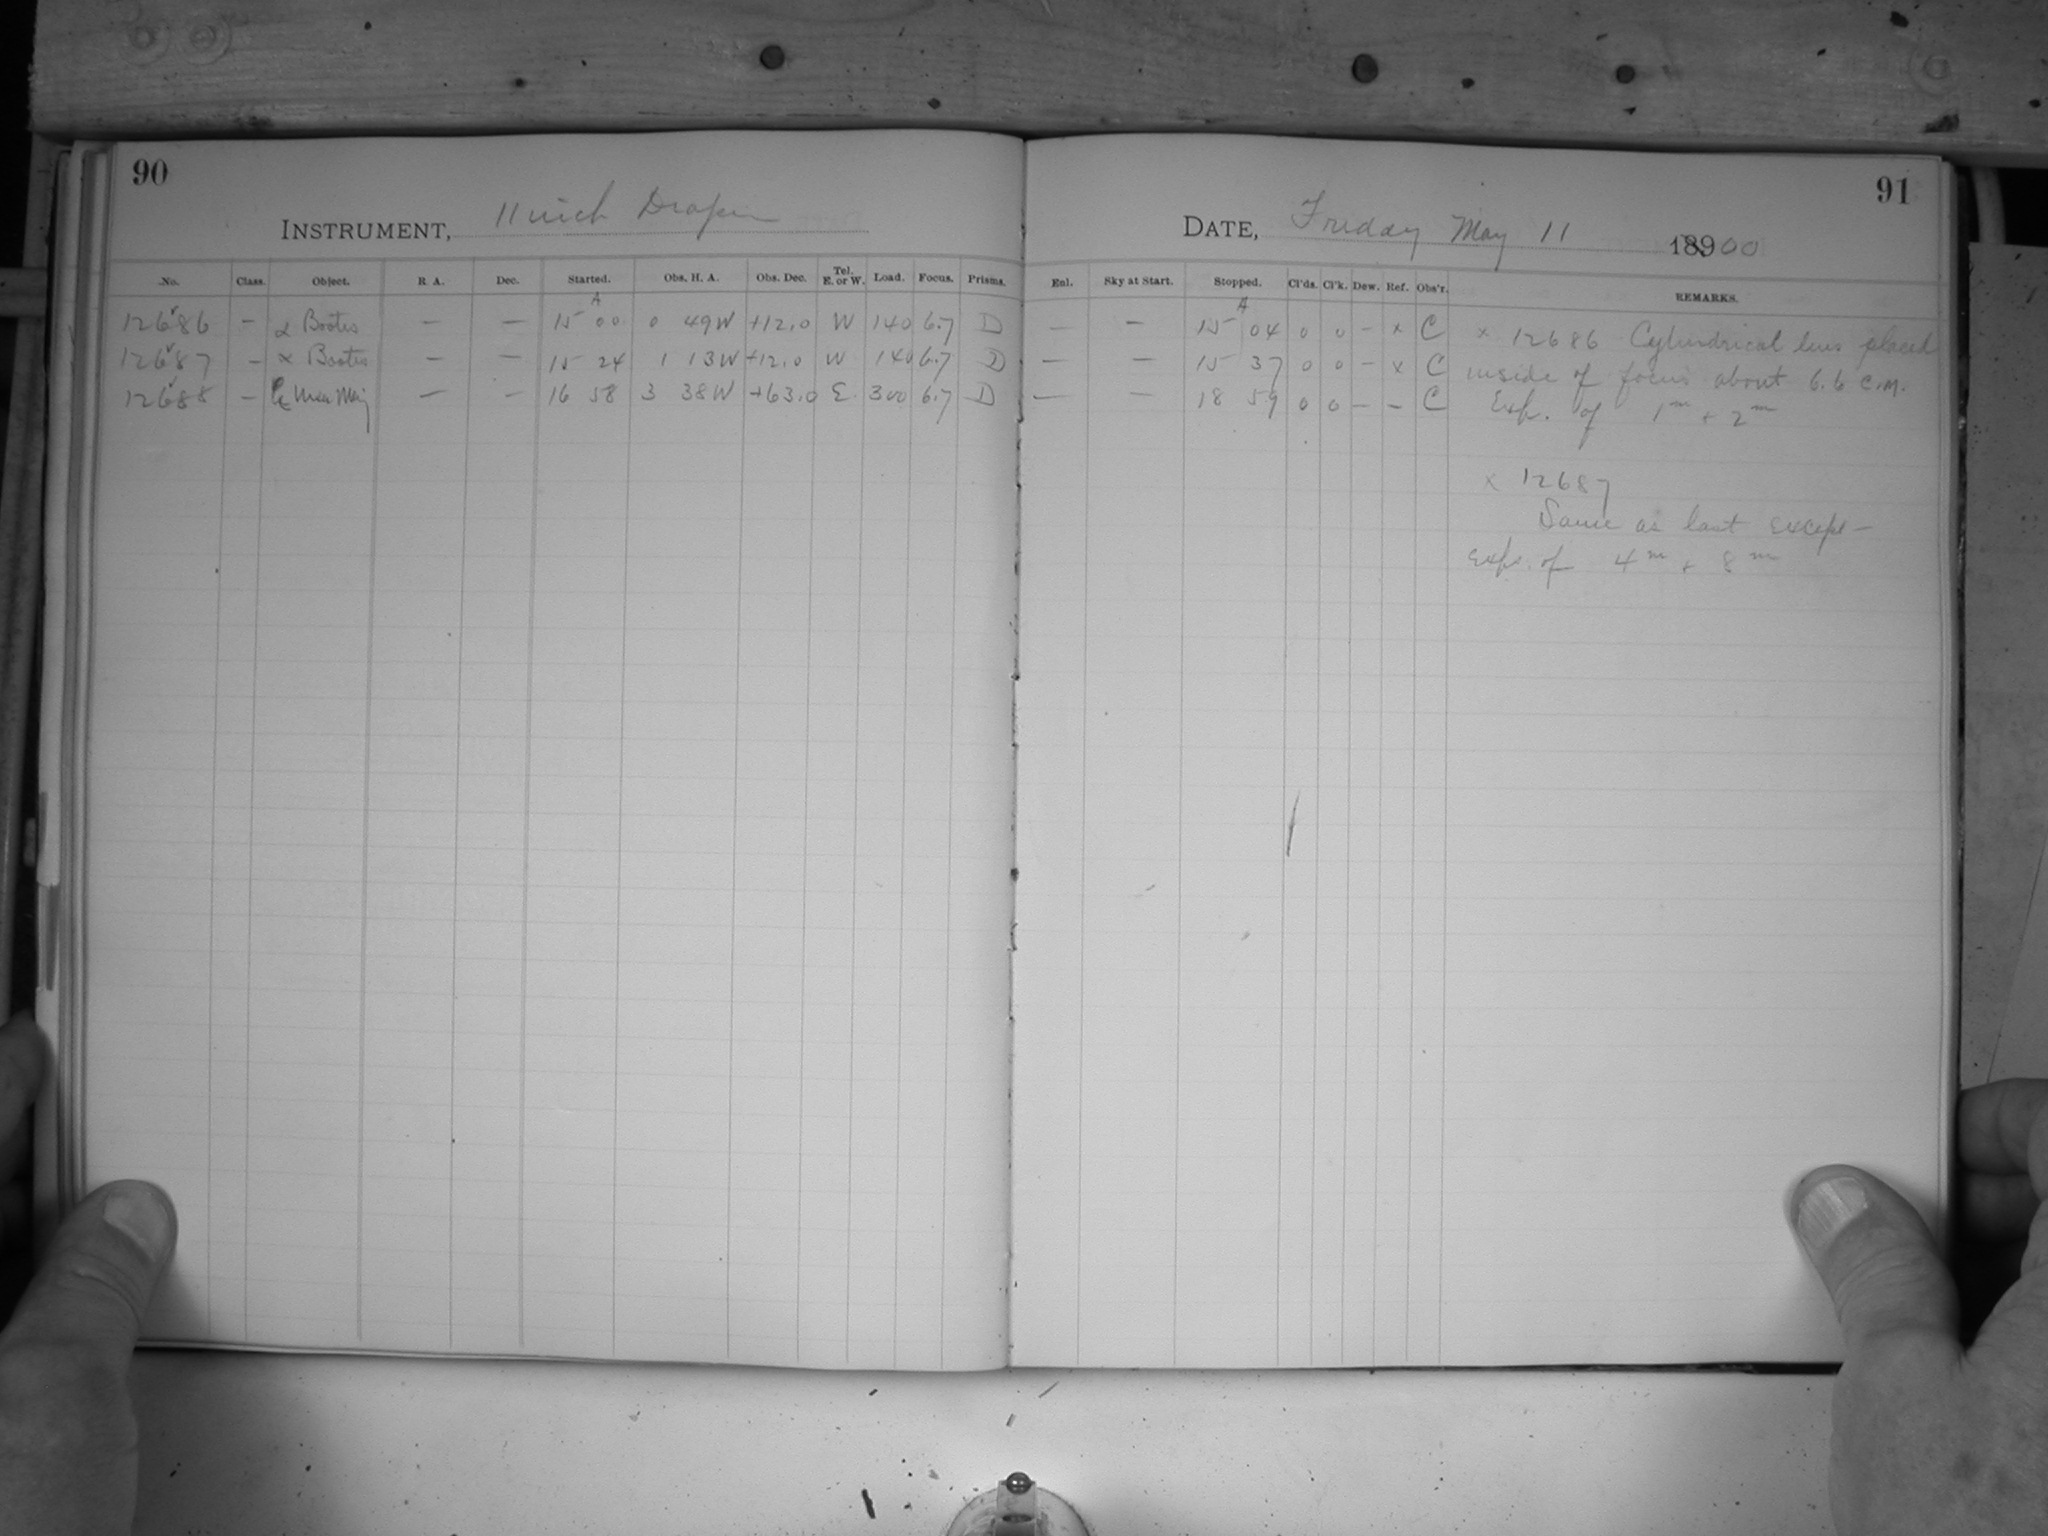 90
INSTRUMENT, 11 inch Draper
No. Class. Object. R. A. Dec. Started. Obs. H. A. Obs. Dec. Tel. E. or W. Load. Focus. Prisms.
A
12686 - α Bootis - - 15 00 0 49W +12.0 W 140 6.7 D
12687 - α Bootis - - 15 24 1 13W +12.0 W 140 6.7 D
12688 - Ursa Maj - - 16 58 3 38W +63.0 E. 300 6.7 D
91
DATE, Friday May 11 18900
Enl. Sky at Start. Stopped. Cl'ds. Cl'k. Dew. Ref. Obs'r. REMARKS.
A
- - 15 04 0 0 - x C x 12686 Cylindrical lens placed
- - 15 37 0 0 - x C inside of focus about 6.6 c.m.
- - 18 59 0 0 - - C Exp. of 1m + 2m
x 12687
Same as last except
exp. of 4m + 8m